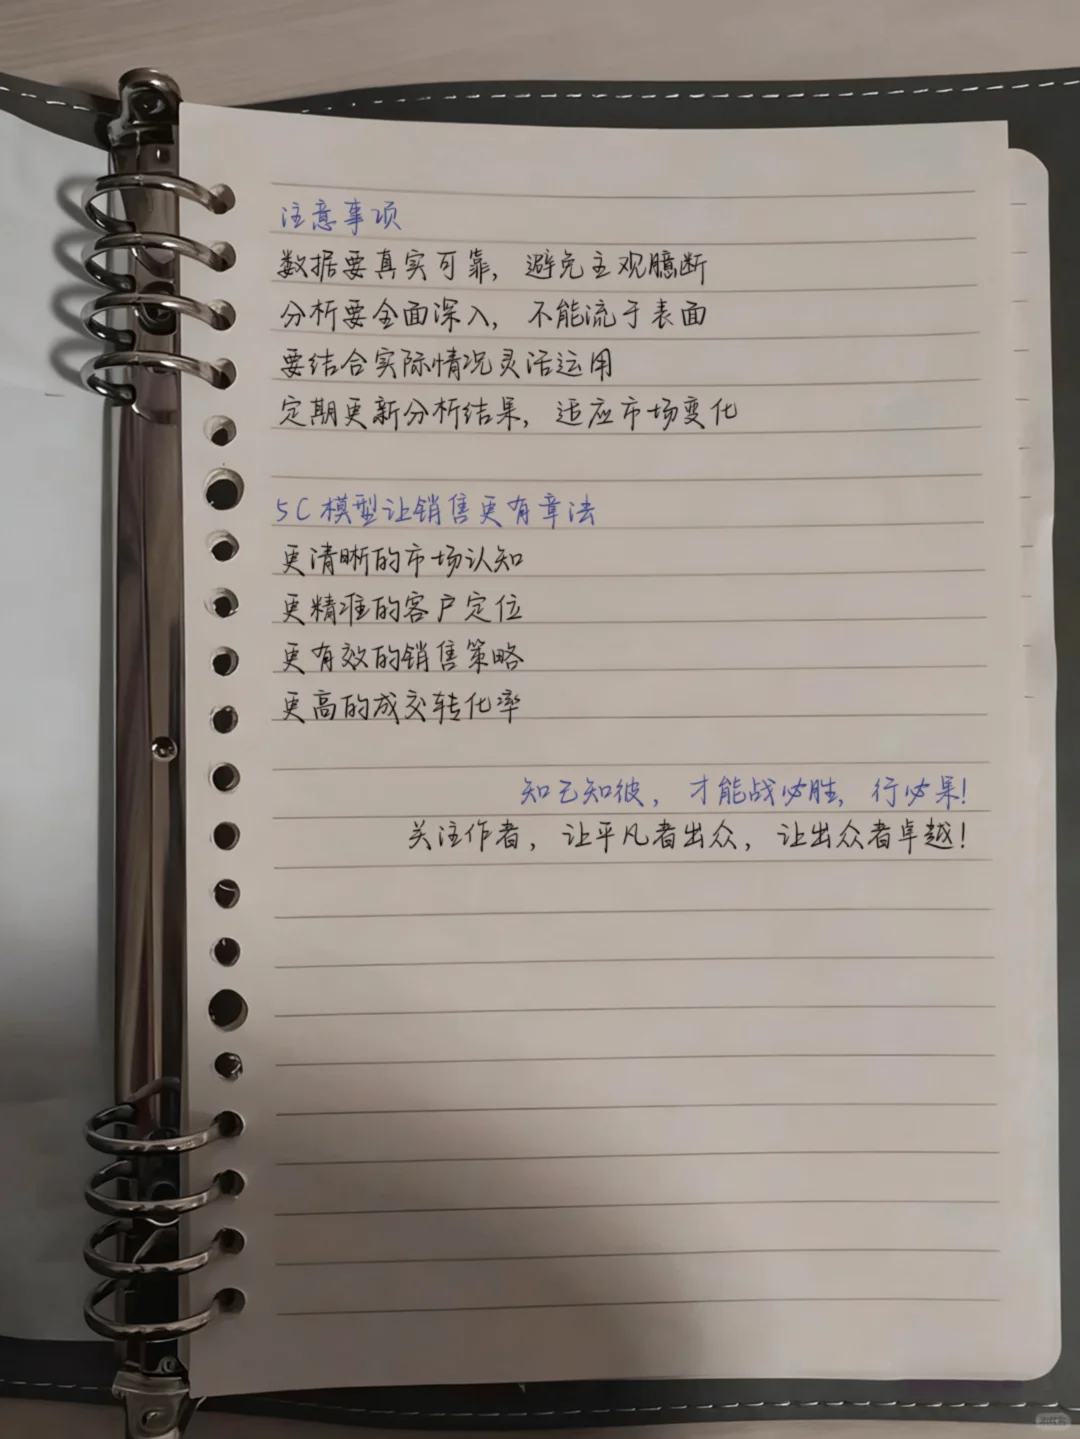 注意事项
数据要真实可靠，避免主观臆断
分析要全面深入，不能流于表面
要结合实际情况灵活运用
定期更新分析结果，适应市场变化
5C模型让销售更有章法
更清晰的市场认知
更精准的客户定位
更有效的销售策略
更高的成交转化率
知己知彼，才能战必胜，行必果！
关注作者，让平凡者出众，让出众者卓越！